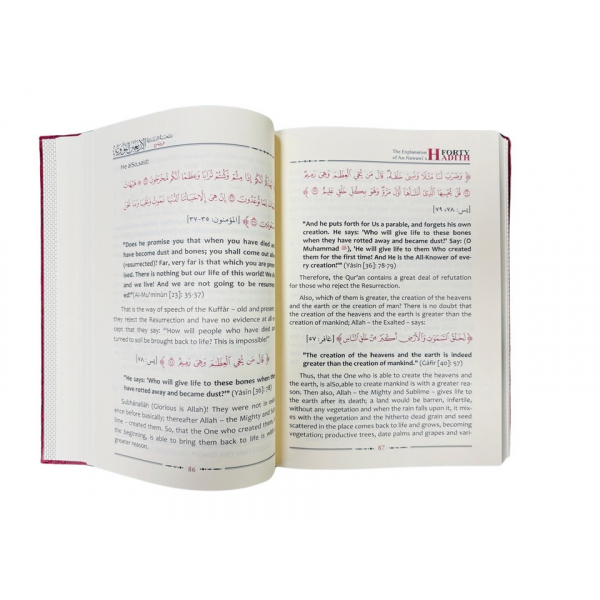 He also,said:
﴿ أَيَعِدُكُمْ أَنَّكُمْ إِذَا مِتُّمْ وَكُنتُمْ تُرَابًا وَعِظَامًا أَنَّكُم مُّخْرَجُونَ ۝ هَيْهَاتَ
إِنْ هِيَ إِلَّا حَيَاتُنَا الدُّنْيَا نَمُوتُ وَنَحْيَا وَمَا
[المؤمنون: ٣٥-٣٧]
"Does he promise you that when you have died and
have become dust and bones; you shall come out alive
(resurrected)? Far, very far is that which you are promised.
There is nothing but our life of this world! We die
and we live! And we are not going to be resurrected!"
(Al-Mu'minūn [23]: 35-37)
That is the way of speech of the Kuffār – old and present
they reject the Resurrection and have no evidence at all
cept that they say: "How will people who have died and
turned to soil be brought back to life? This is impossible!"
﴿ قَالَ مَن يُحْيِ الْعِظَامَ وَهِيَ رَمِيمٌ ۝ ﴾ [يس: ٧٨]
"He says: 'Who will give life to these bones when they
have rotted away and became dust?'" (Yāsīn [36]: 78)
Subhānallāh (Glorious is Allah)! They were not in existence
before basically; thereafter Allah – the Mighty and
Sublime – created them. So, that the One who created them
the beginning, is able to bring them back to life is with
greater reason.
86
The Explanation
of An-Nawawi's
FORTY
HADITH
﴿ وَضَرَبَ لَنَا مَثَلًا وَنَسِيَ خَلْقَهُ قَالَ مَن يُحْيِ الْعِظَامَ وَهِيَ رَمِيمٌ
۝ قُلْ يُحْيِيهَا الَّذِي أَنشَأَهَا أَوَّلَ مَرَّةٍ وَهُوَ بِكُلِّ خَلْقٍ عَلِيمٌ ۝ ﴾
[يس: ٧٨، ٧٩]
"And he puts forth for Us a parable, and forgets his own
creation. He says: 'Who will give life to these bones
when they have rotted away and became dust?' Say: (O
Muhammad ﷺ), 'He will give life to them Who created
them for the first time! And He is the All-Knower of ev-
ery creation!'" (Yāsīn [36]: 78-79)
Therefore, the Qur'an contains a great deal of refutation
for those who reject the Resurrection.
Also, which of them is greater, the creation of the heavens
and the earth or the creation of man? There is no doubt that
the creation of the heavens and the earth is greater than the
creation of mankind; Allah – the Exalted – says:
﴿ لَخَلْقُ السَّمَوَاتِ وَالْأَرْضِ أَكْبَرُ مِنْ خَلْقِ النَّاسِ ﴾ [غافر: ٥٧]
"The creation of the heavens and the earth is indeed
greater than the creation of mankind." (Gāfir [40]: 57)
Thus, that the One who is able to create the heavens and
the earth, is alSo,able to create mankind is with a greater rea-
son. Then also, Allah – the Mighty and Sublime – gives life to
the earth after its death; a land would be barren, infertile,
without any vegetation and when the rain falls upon it, it mix-
es with the vegetation and the hitherto dead grain and seed
scattered in the place comes back to life and grows, becoming
vegetation; productive trees, date palms and grapes and vari-
87